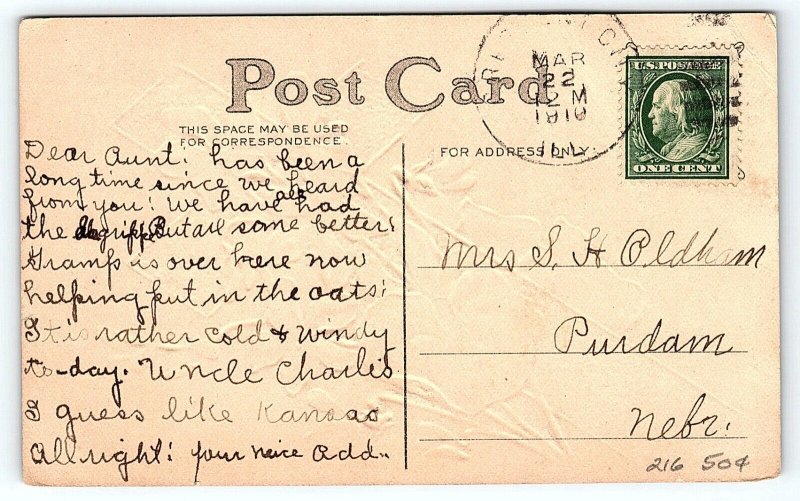 Post Card
THIS SPACE MAY BE USED
FOR CORRESPONDENCE.
FOR ADDRESS ONLY.
MAR
22
12 M
1910
ILL.
U.S. POSTAGE
ONE CENT
Dear Aunt: has been a
long time since we heard
from you! We have all had
the grippe But all some better!
Gramp is over here now
helping put in the oats!
It is rather cold & windy
to-day. Uncle Charlies
I guess like Kansas
all right! your neice Add..
Mrs S. H Oldham
Purdam
Nebr.
216 50¢